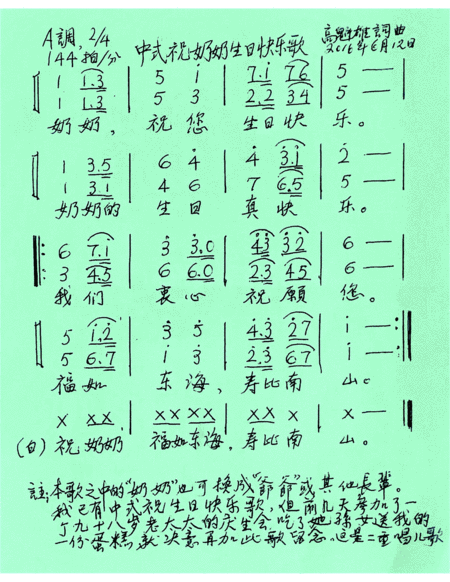 A調, 2/4 中式祝奶奶生日快乐歌 高魁雄詞曲
144拍/分 2016年6月12日
1 1.3 | 5 1 | 7.1 76 | 5 — |
1 1.3 | 5 3 | 2.2 34 | 5 — |
奶奶, 祝您 生日快 乐。
1 3.5 | 6 4̇ | 4̇ 3̇.1̇ | 2̇ — |
1 3.1 | 4 6 | 7 6.5 | 5 — |
奶奶的 生日 真快 乐。
6 7.1̇ | 3̇ 3̇.0 | 4̇3̇ 3̇2̇ | 6 — |
3 4.5 | 6 6.0 | 2.3 45 | 6 — |
我们 衷心 祝願 您。
5 1̇.2̇ | 3̇ 5̇ | 4̇.3̇ 2̇7 | 1̇ — :
5 6.7 | 1̇ 3̇ | 2̇.3̇ 67 | 1̇ — :
福如 东海, 寿比南 山。
x xx | xx xx | xx x | x —
(白) 祝奶奶 福如东海, 寿比南 山。
註:本歌之中的"奶奶"也可換成"爺爺"或其他長輩。
我已有中式祝生日快乐歌,但前几天参加了一
个九十八岁老太太的庆生会吃了她孫女送我的
一份蛋糕,故决意再加此歌留念,但是二重唱儿歌